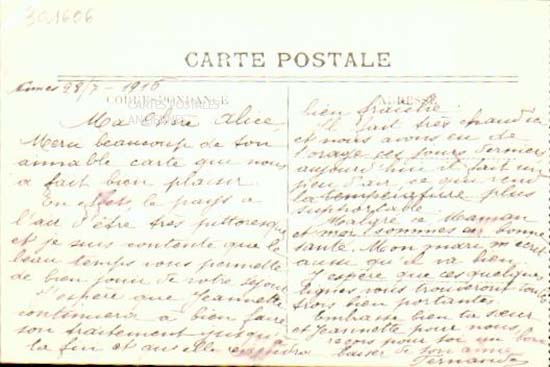 301606
CARTE POSTALE
28/7 - 1916
CORRESPONDANCE
CARTES POSTALES
ADRESSE
Ma Chère Alice,
Merci beaucoup de ton
aimable carte qui nous
a fait bien plaisir.
En effets le pays a
l'air d'être très pittoresque
et je suis contente que le
beau temps vous permette
de bien jouir de votre séjour
J'espère que Jeannette
continuera à bien faire
son traitement jusqu'à
la fin et
bien fraiche.
Il fait très chaud ici
et nous avons eu de
l'orage ces jours derniers
aujourd'hui il fait un
peu d'air, ce qui rend
la température plus
supportable.
Malgré ce Maman
et moi sommes en bonne
santé. Mon mari m'écrit
aussi qu'il va bien.
J'espère que ces quelques
lignes vous trouveront toutes
trois bien portantes.
Embrasse bien ta sœur
et Jeannette pour nous
reçois pour toi un bon
baiser de ton amie
Fernande